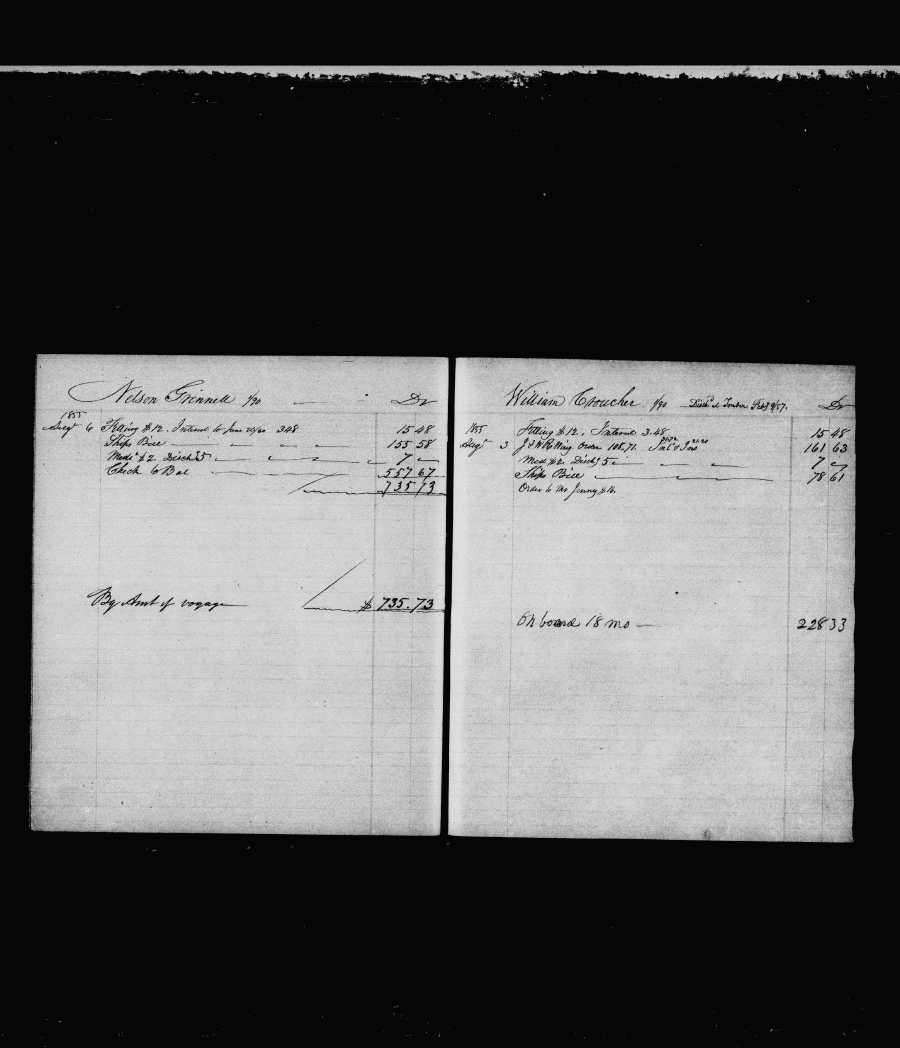 Nelson Grinnell 1/90 Dr
1855
Augt 6 Fitting $12. Interest to June 20/60 348 15 48
Ships Bill 155 58
Med. $2 Disch. $5 7 –
Check to Bal 557 67
735 73
By Amt of voyage $ 735.73
William Croucher 1/90 Dischd at Tombez Feby 9/57. Dr
1855 Fitting $12. Interest 3.48 15 48
Augt 3 J & W R Wing Order 108.71. Int & Ins 161 63
Med $2 Disch. 5 7 –
Ships Bill 78 61
Order to Mr Jenny $16.
On board 18 mo – 228 33